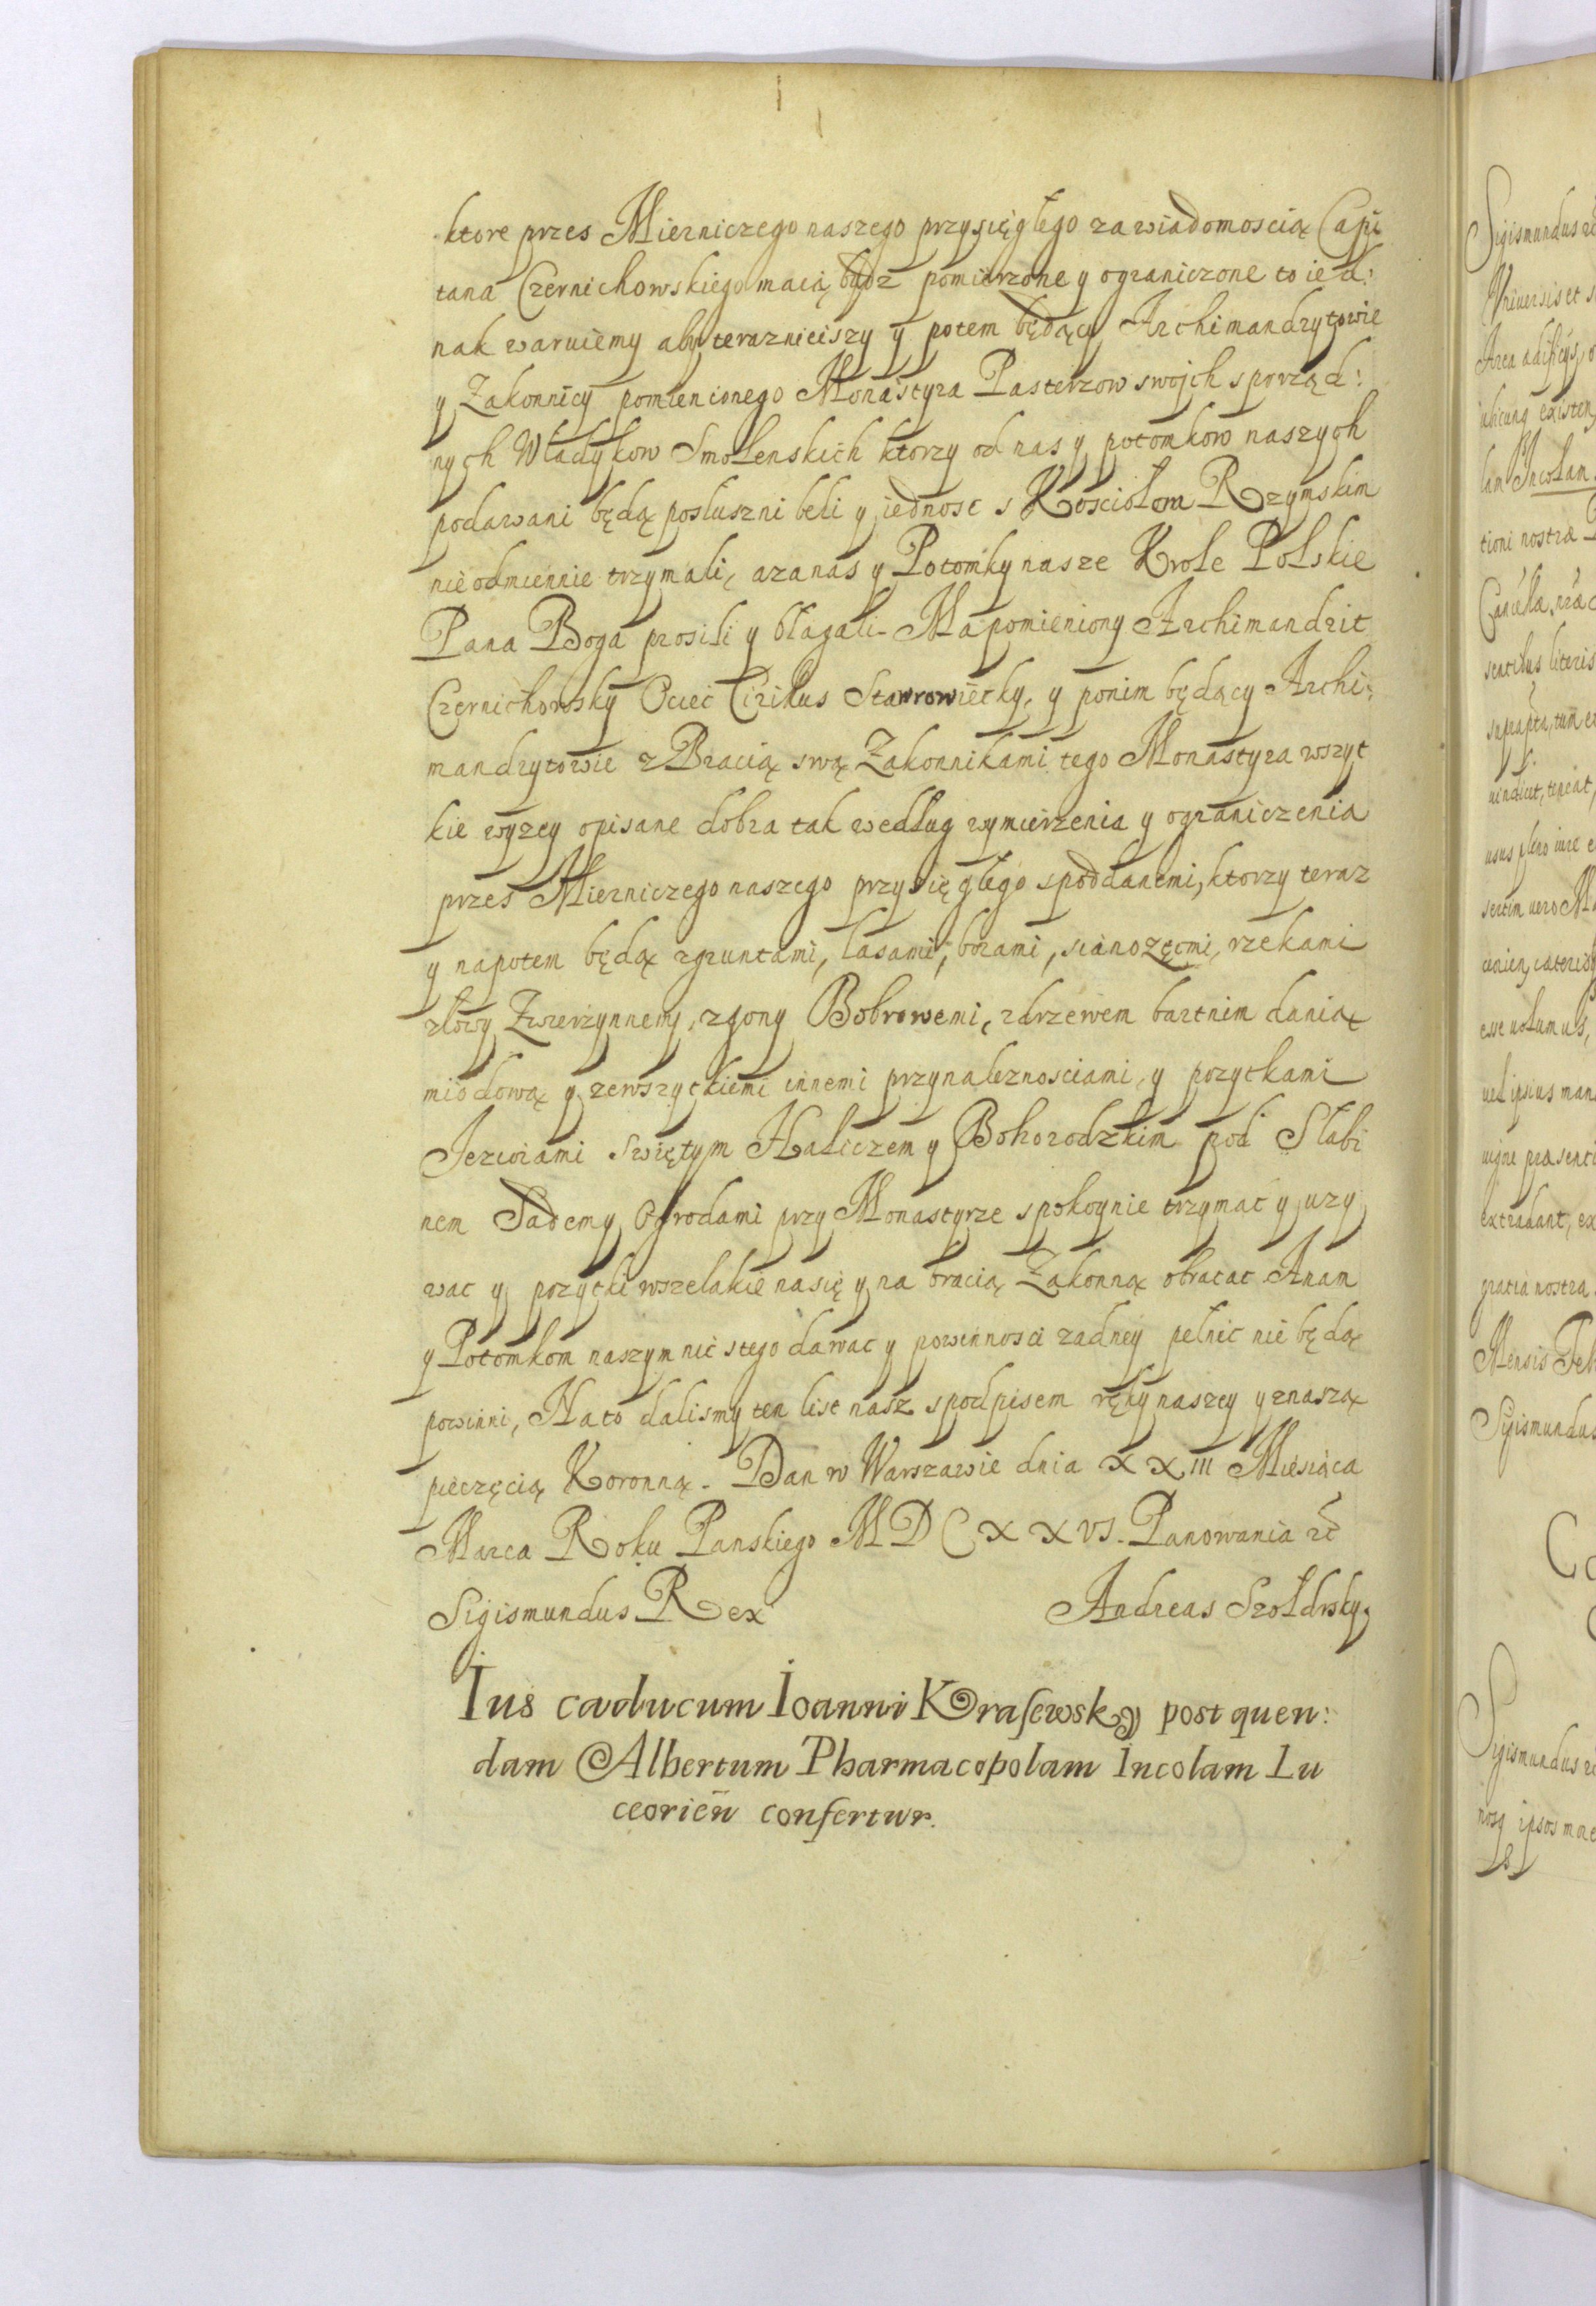 ktore przes Mierniczego naszego przysięgłego za wiadomoscią Capi
tana Czernichowskiego maią bydz pomierzone y ograniczone to ied:
nak waruiemy aby terazneiszy y potem będący Archimandrytowie
y Zakonnicy pomienionego Monastyra Pasterzow swojch sporząd:
nych Władykow Smolenskich ktorzy od nas y potomkow naszych
podawani będą posłuszni beli y iednosc s Kosciołem Rzymskim
nieodmiennie trzymali, aza nas y Potomky nasze Krole Polskie
Pana Boga prosili y błagali. Ma pomieniony Archimandrit
Czernichowsky Ociec Cirilus Stawrowiecky, y ponim będący Archi:
mandrytowie z Bracią swą Zakonnikami tego Monastyra wszyt
kie wyzey opisane dobra tak według wymierzenia y ograniczenia
przes Mierniczego naszego przysięgłego spoddanemi, ktorzy teraz
y napotem będą zgruntami, lasami, borami, sianozęcmi, rzekami
złowy Zwierzynnemy, zgony Bobrowemi, zdrzewem bartnim danią
miodową y zewszytkiemi innemi przynaleznosciami, y pozytkami
Jeziorami Swiętym Haliczem y Bohorodzkim pod Słabi
nem Sademy Ogrodami przy Monastyrze spokoynie trzymać y uzy
wac y pozytki wszelakie na się y na bracią Zakonną obracac. A nam
y Potomkom naszym nic stego dawac y powinnosci zadney pełnic nie będą
powinni, Na to dalismy ten list nasz spodpisem ręky naszey y znaszą
pieczęcią Koronną. Dan w Warszawie dnia XXIII Miesiąca
Marca Roku Panskiego MDCXXVI. Panowania etc
Sigismundus Rex Andreas Szołdrsky
Ius caducum Ioanni Krasewsky post quen:
dam Albertum Pharmacopolam Incolam Lu
ceorien̄ confertur.